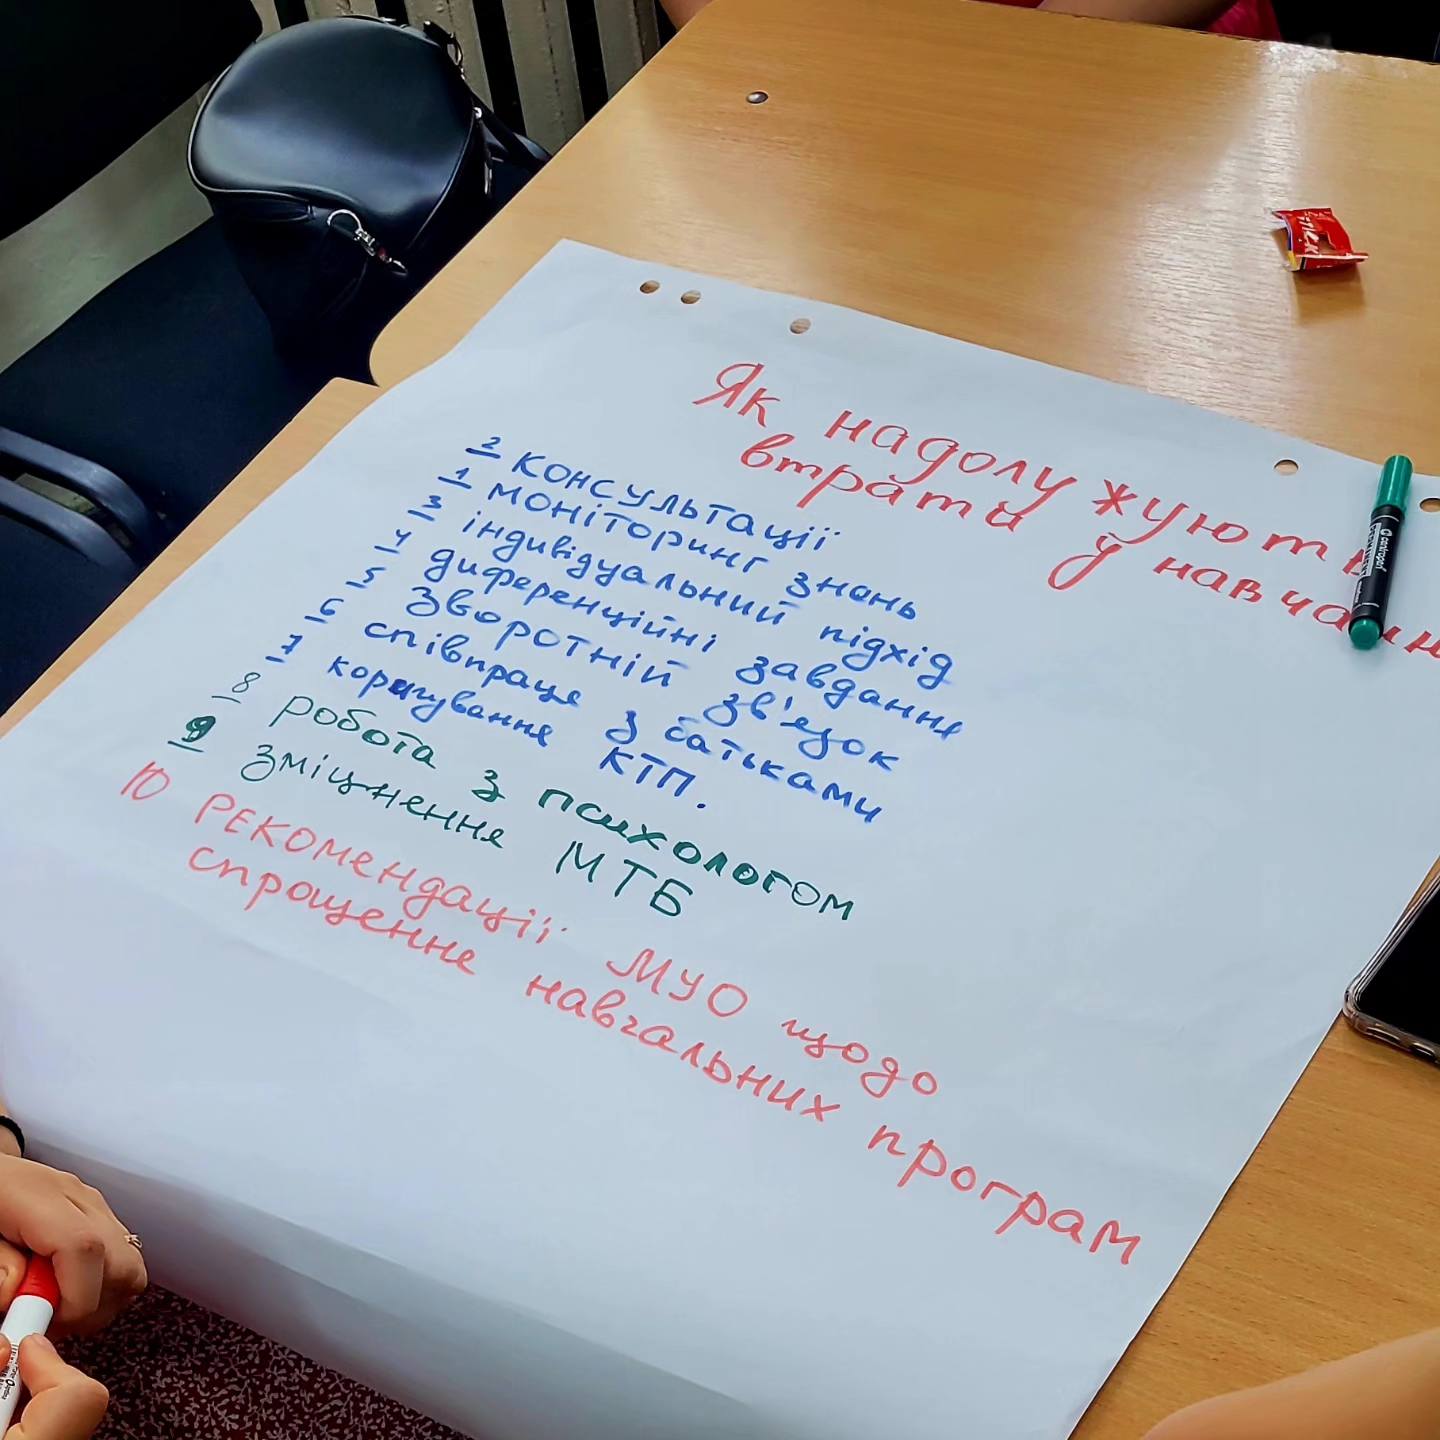 Як надолужують
втрати у навчан
2 консультації
1 моніторинг знань
3 індивідуальний підхід
4 диференційні завдання
5 Зворотній зв'язок
6 співпраця з батьками
7 корегування КТП.
8 робота з психологом
9 зміцнення МТБ
10 Рекомендації МУО щодо
спрощення навчальних програм
centropen